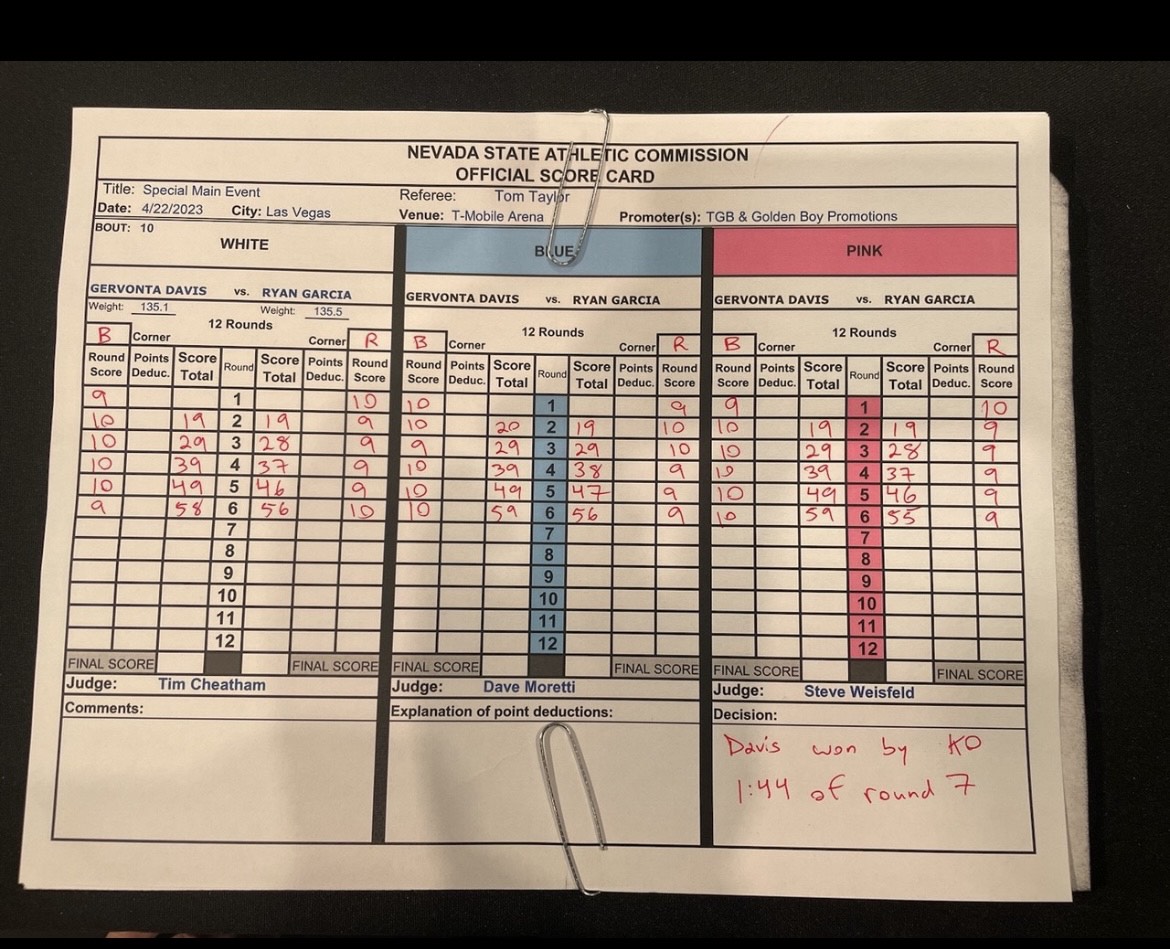 NEVADA STATE ATHLETIC COMMISSION
OFFICIAL SCORE CARD
Title: Special Main Event Referee: Tom Taylor
Date: 4/22/2023 City: Las Vegas Venue: T-Mobile Arena Promoter(s): TGB & Golden Boy Promotions
BOUT: 10
WHITE BLUE PINK
GERVONTA DAVIS vs. RYAN GARCIA GERVONTA DAVIS vs. RYAN GARCIA GERVONTA DAVIS vs. RYAN GARCIA
Weight: 135.1 Weight: 135.5
12 Rounds 12 Rounds 12 Rounds
B Corner Corner R B Corner Corner R B Corner Corner R
Round Points Score Round Score Points Round Round Points Score Round Score Points Round Round Points Score Round Score Points Round
Score Deduc. Total Total Deduc. Score Score Deduc. Total Total Deduc. Score Score Deduc. Total Total Deduc. Score
9 1 10 10 1 9 9 1 10
10 19 2 19 9 10 20 2 19 10 10 19 2 19 9
10 29 3 28 9 9 29 3 29 10 10 29 3 28 9
10 39 4 37 9 10 39 4 38 9 10 39 4 37 9
10 49 5 46 9 10 49 5 47 9 10 49 5 46 9
9 58 6 56 10 10 59 6 56 9 10 59 6 55 9
7 7 7
8 8 8
9 9 9
10 10 10
11 11 11
12 12 12
FINAL SCORE FINAL SCORE FINAL SCORE FINAL SCORE FINAL SCORE FINAL SCORE
Judge: Tim Cheatham Judge: Dave Moretti Judge: Steve Weisfeld
Comments: Explanation of point deductions: Decision:
Davis won by KO
1:44 of round 7